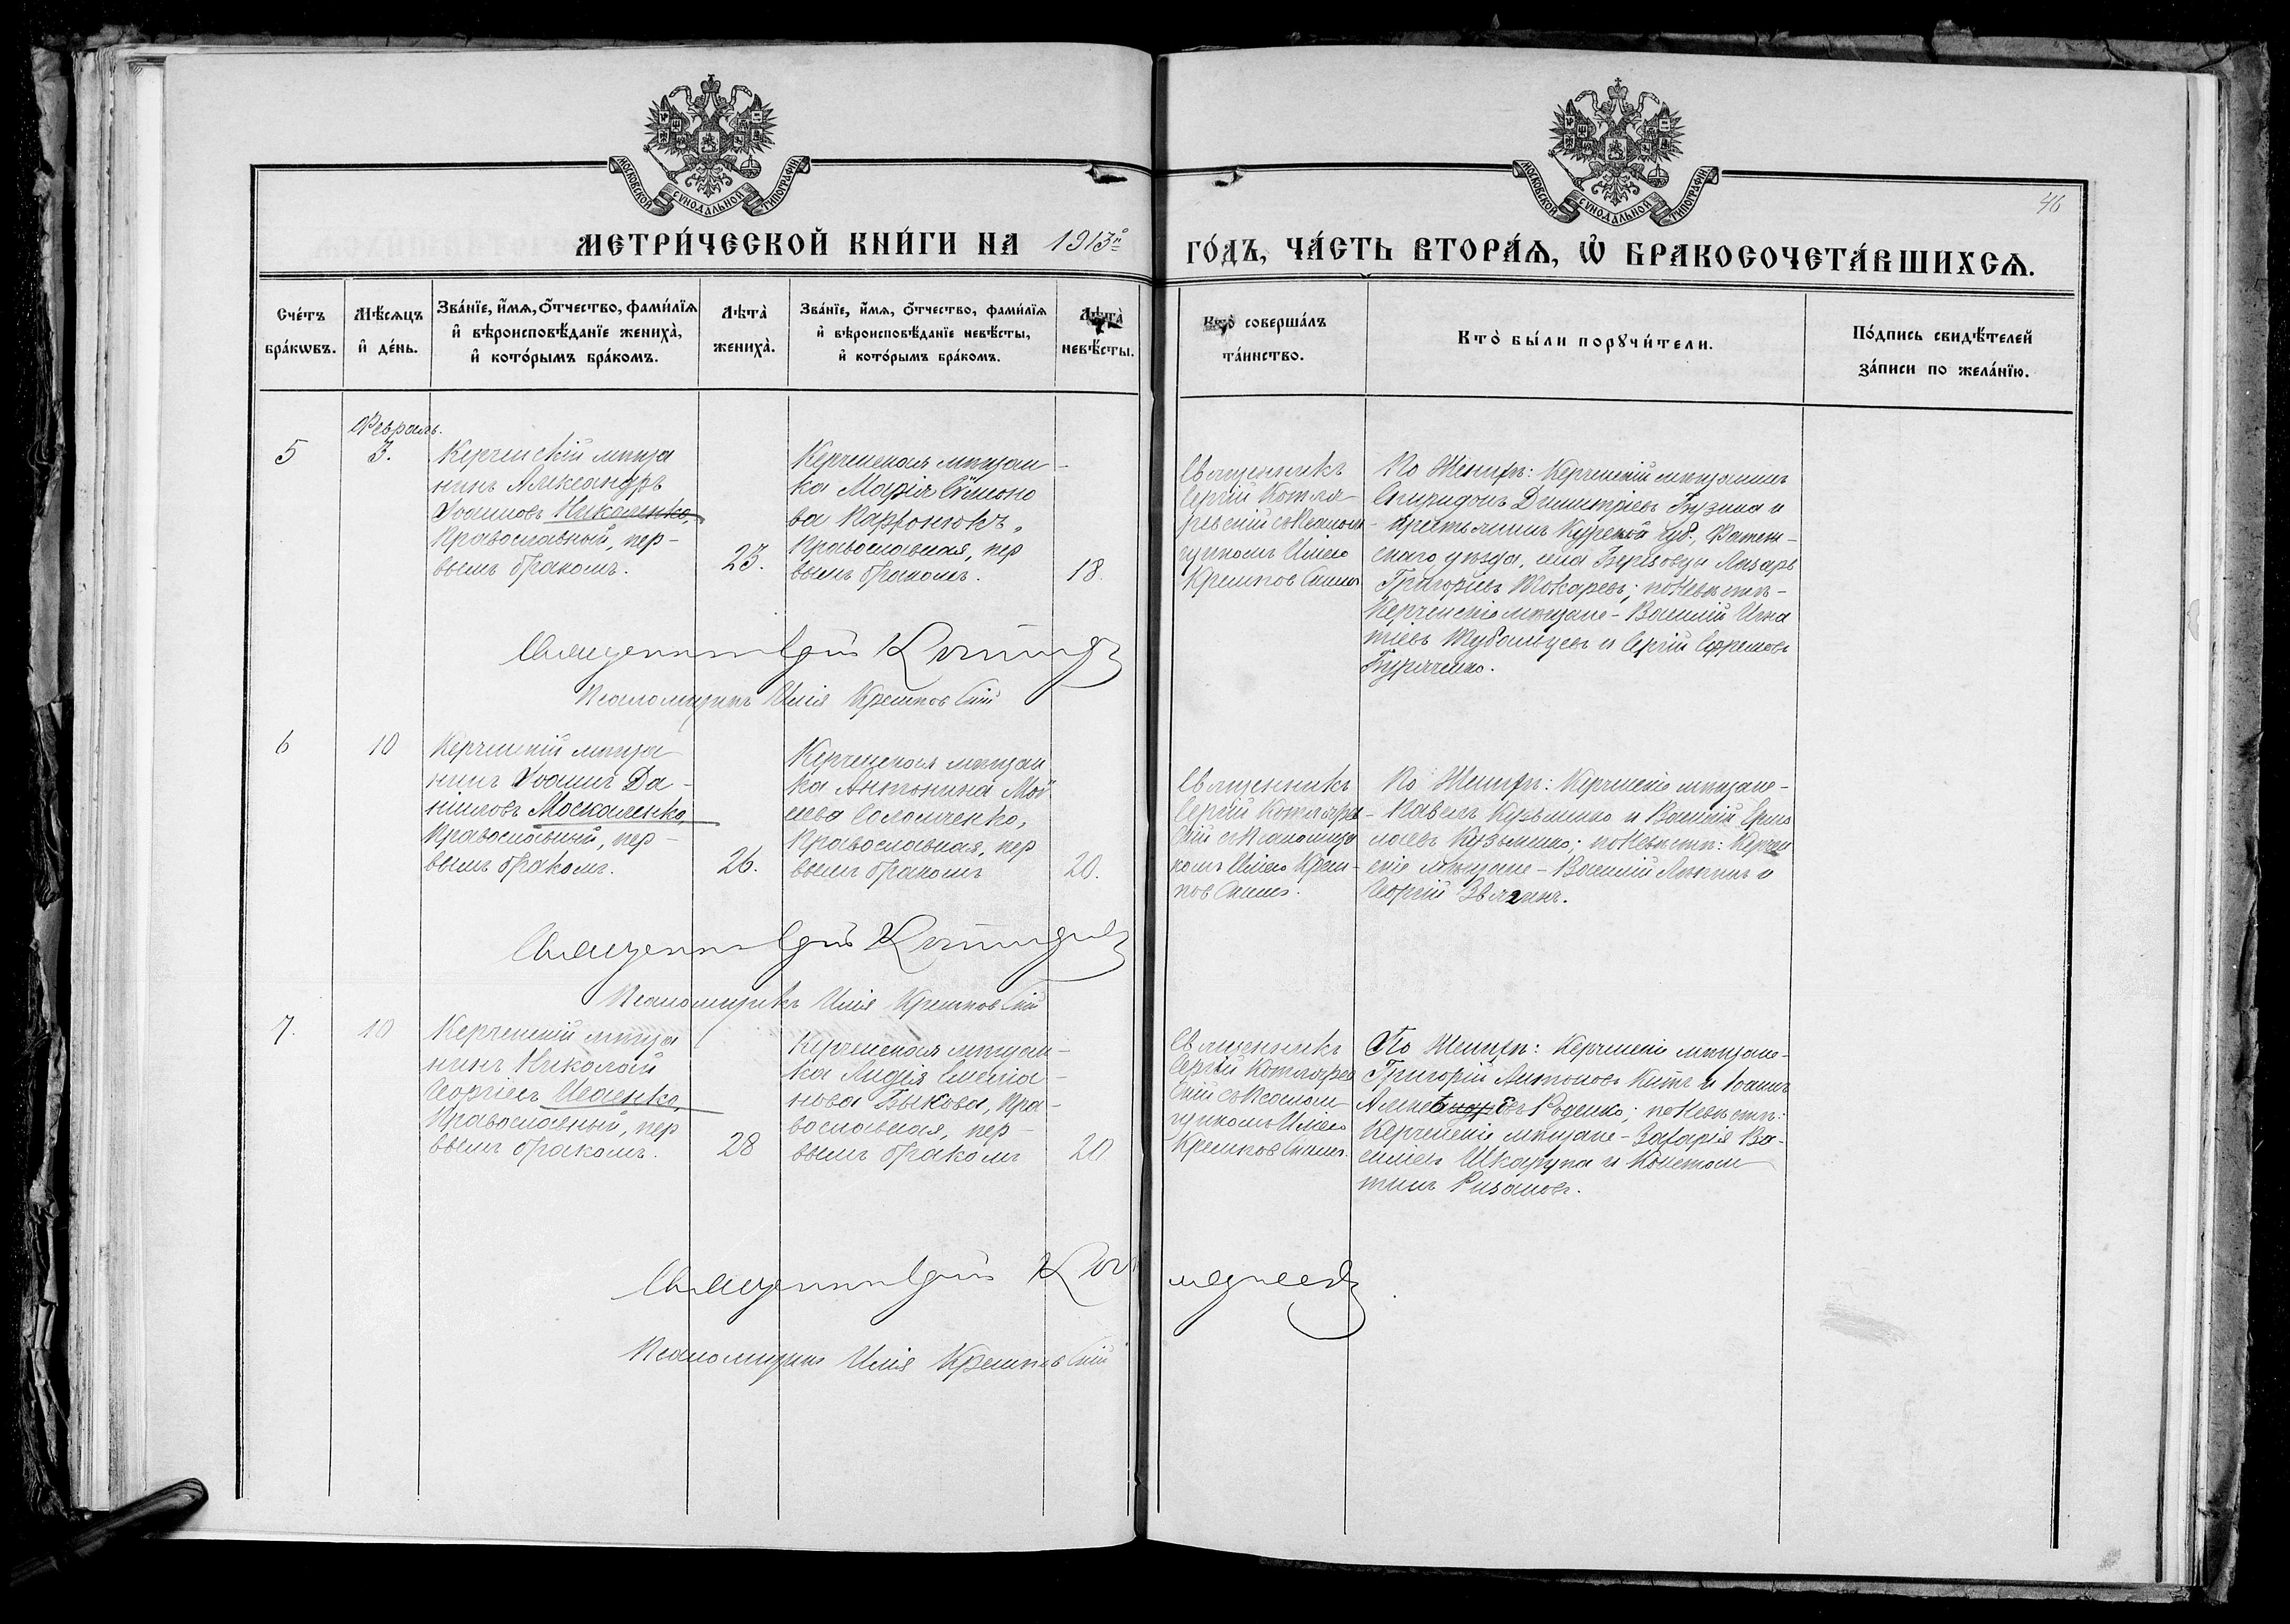 МОСКОВСКОЙ СѴНОДАЛЬНОЙ ТИПОГРАФИИ
МОСКОВСКОЙ СѴНОДАЛЬНОЙ ТИПОГРАФИИ
46
МЕТРИ́ЧЕСКОЙ КНИ́ГИ НА 1913й
ГО́ДЪ, ЧА́СТЬ ВТОРА́Ѧ, Ѽ БРАКОСОЧЕТА́ВШИХСѦ.
Сче́тъ бра́кѡвъ.
Мѣ́сѧцъ и҆ де́нь.
Зва́нїе, и҆́мѧ, ѻ҆́тчество, фами́лїѧ и҆ вѣроисповѣ́данїе жениха̀, и҆ кото́рымъ бра́комъ.
Лѣта̀ жениха̀.
Зва́нїе, и҆́мѧ, ѻ҆́тчество, фами́лїѧ и҆ вѣроисповѣ́данїе невѣ́сты, и҆ кото́рымъ бра́комъ.
Лѣта̀ невѣ́сты.
Кто̀ соверша́лъ та́инство.
Кто̀ бы́ли порꙋчи́тели.
По́дпись свидѣ́телей за́писи по жела́нїю.
Февраль.
5
3.
Керченскій мѣща
нинъ Александръ
Іоанновъ Николенко,
Православный, пер-
вымъ бракомъ.
23.
Керченская мѣщан-
ка Марія Симоно
ва Парфонюкъ,
Православная, пер
вымъ бракомъ.
18.
Священникъ
Сергій Котля
ревскій съ Псалом
щикомъ Иліею
Крешповскимъ
По Женихѣ: Керченскій мѣщанинъ
Спиридонъ Димитріевъ Бузина и
крестьянинъ Курской губ., Фатеж-
скаго уѣзда, села Лазарь
Григорьевъ Токаревъ; по Невѣстѣ-
Керченскіе мѣщане - Василій Игна
тіевъ и Сергій Ефремовъ
Бураченко.
Священникъ Сергій
Псаломщикъ Илія Крешповскій
6
10
Керченскій мѣща
нинъ Іоаннъ Да-
ніиловъ Москаленко,
Православный, пер-
вымъ бракомъ.
26.
Керченская мѣщан
ка Антонина Мой
сеева Соломченко,
Православная, пер
вымъ бракомъ
20.
Священникъ
Сергій Котлярев
скій съ Псаломщи
комъ Иліею Креш-
повскимъ.
По Женихѣ: Керченскіе мѣщане-
Павелъ Кузьменко и Василій Ермо
лаевъ Кузьменко; по Невѣстѣ: Керчен
скіе мѣщане - Василій и
Георгій Звягинъ.
Священникъ Сергій
Псаломщикъ Илія Крешповскій
7.
10
Керченскій мѣща
нинъ Николай
Георгіевъ Исаенко,
Православный, пер
вымъ бракомъ.
28
Керченская мѣщан-
ка Лидія Емеліа-
нова Быкова, Пра-
вославная, пер-
вымъ бракомъ
20
Священникъ
Сергій Котлярев
скій съ Псалом
щикомъ Иліею
Крешповскимъ.
По Женихѣ: Керченскіе мѣщане-
Григорій Антоновъ Китъ и Іоаннъ
Роденко; по Невѣстѣ:
Керченскіе мѣщане - Захарія Ва-
сильевъ Шкарупа и Констан
тинъ Рызановъ.
Священникъ Сергій
Псаломщикъ Илія Крешповскій